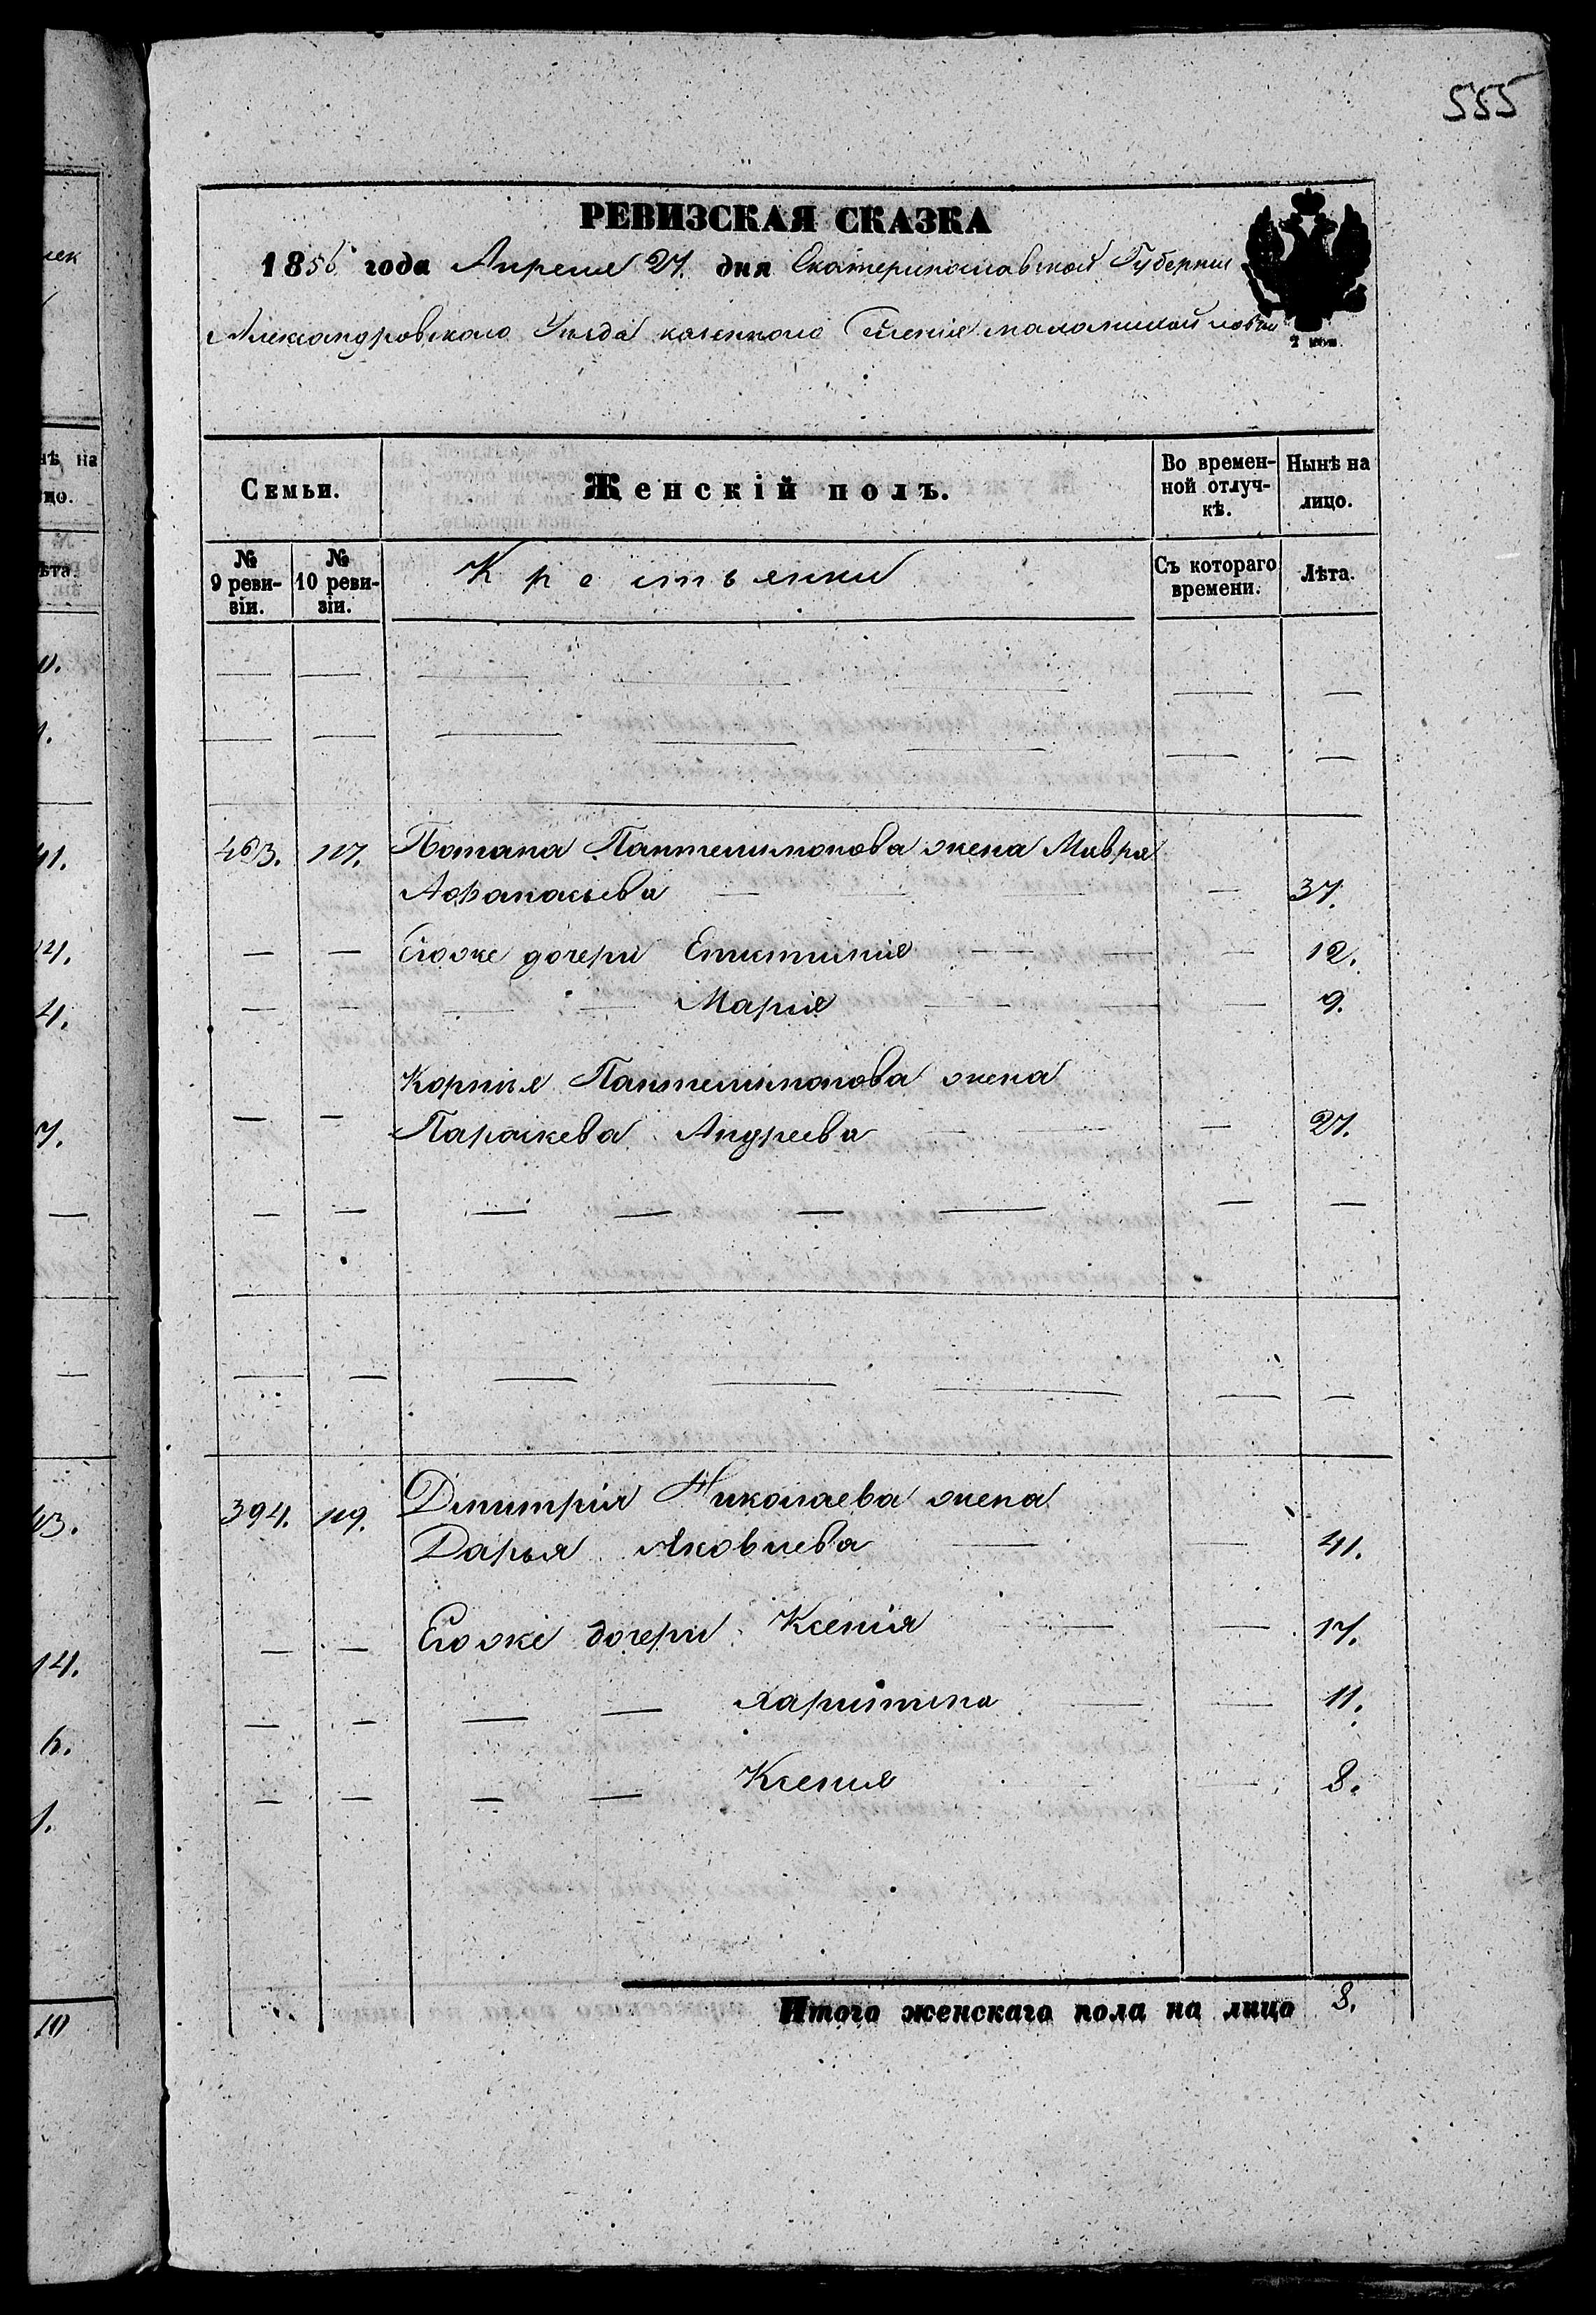 555
РЕВИЗСКАЯ СКАЗКА
1856 года Апреля 27. дня Екатеринославской Губернии
Александровского Уезда казенного Селения маломихайловки
2 коп.
Семьи.
Женскій полъ.
Во времен-
ной отлуч-
кѣ.
Нынѣ на
лицо.
№
9 реви-
зіи.
№
10 реви-
зіи.
Крестьянки
Съ котораго
времени.
Лѣта.
463. 117. Потапа Пантелимонова жена Мавра
Афанасьева — — 37.
— — Егоже дочери Епистимия — — — 12.
— — — — Мария — — — 9.
Корнѣя Пантелимонова жена
— — Параскева Андреева — — — 27.
— — — — — — — —
— — — — — — —
394. 119. Дмитрія Николаева жена
Дарья Яковлева — — 41.
— — Егоже дочери Ксенія — — 17.
— — — — Харитина — — 11.
— — — — Ксения — 8.
Итого женскаго пола на лицо 8.